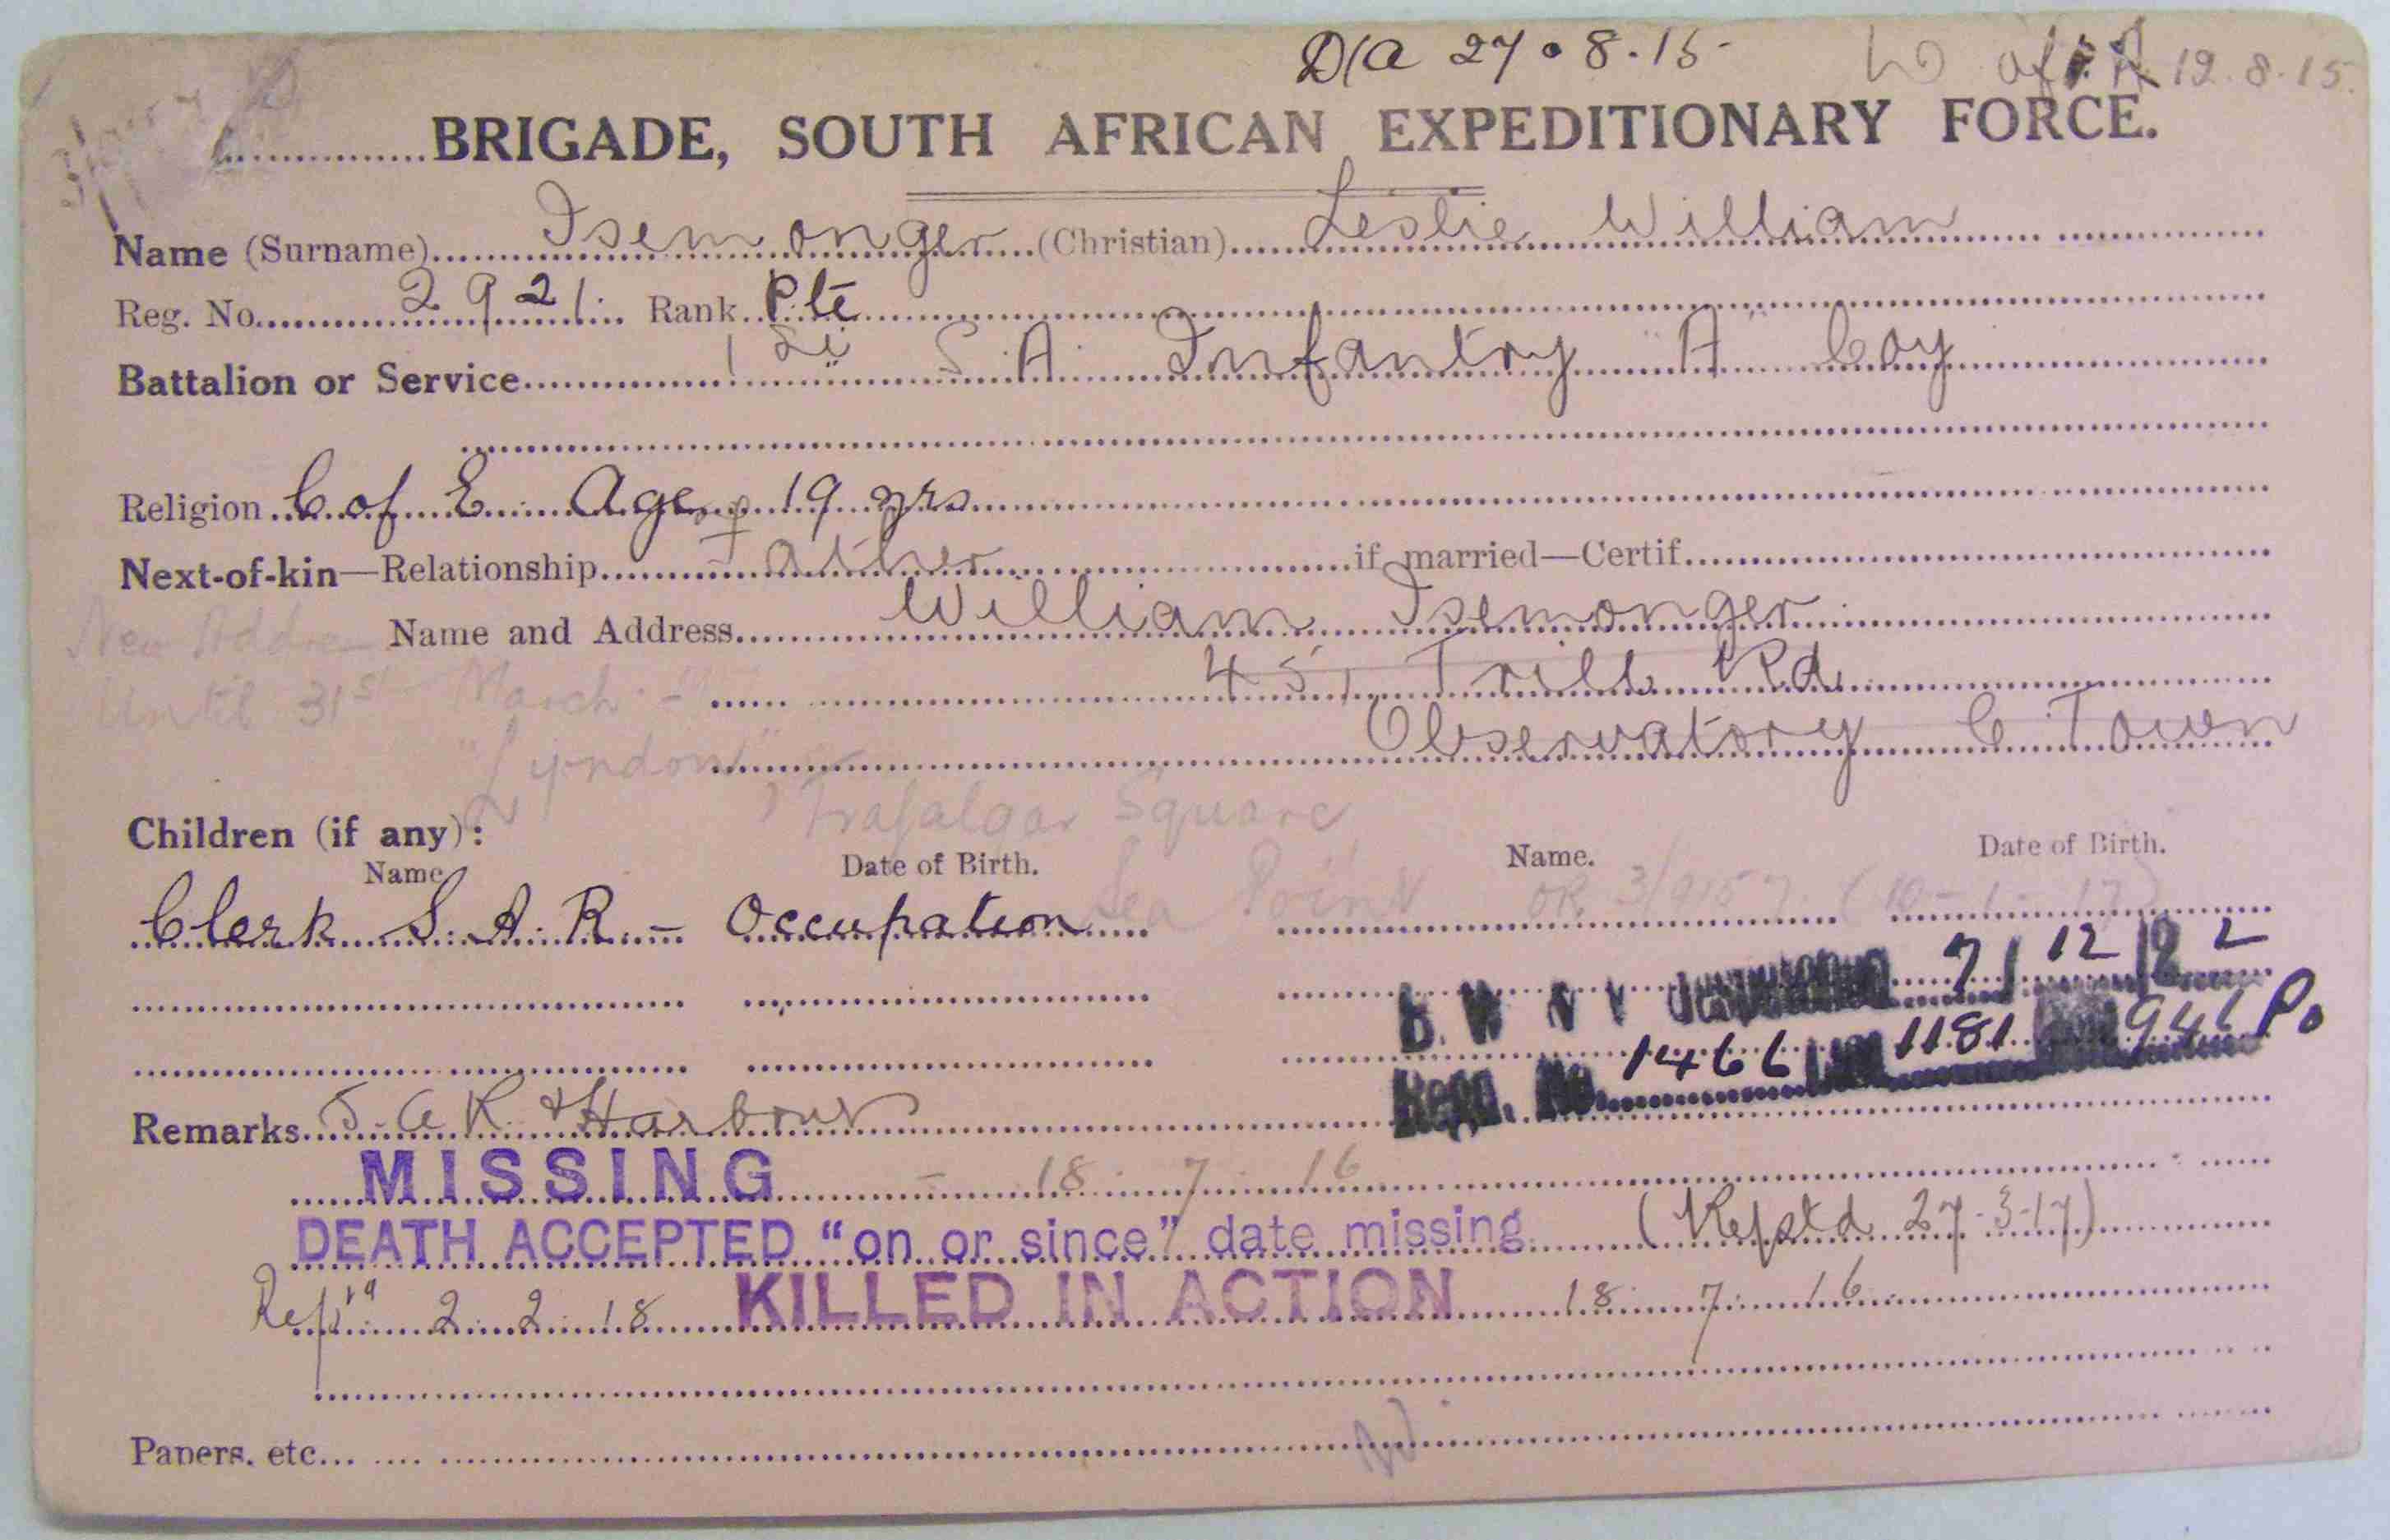 D/A 27.8.15 12.8.15.
BRIGADE, SOUTH AFRICAN EXPEDITIONARY FORCE.
Name (Surname) Isemonger (Christian) Leslie William
Reg. No. 2921. Rank Pte
Battalion or Service 1st S A Infantry A Coy
Religion C of E Age 19 yrs
Next-of-kin—Relationship Father if married—Certif.
New Address Name and Address William Isemonger
Until 31st March - 45, Trill Rd
"Lyndon" Observatory C Town
Trafalgar Square
Children (if any):
Name Date of Birth. Name. Date of Birth.
Clerk S. A. R. - Occupation Sea Point OR (10-1-17)
B. W 7/12/22
Regn. No. 1466 1181 946 Po
Remarks S.A.R. & Harbour
MISSING - 18.7.16
DEATH ACCEPTED "on or since" date missing (Reptd 27-3-17)
Reptd 2.2.18 KILLED IN ACTION 18.7.16.
Papers, etc.